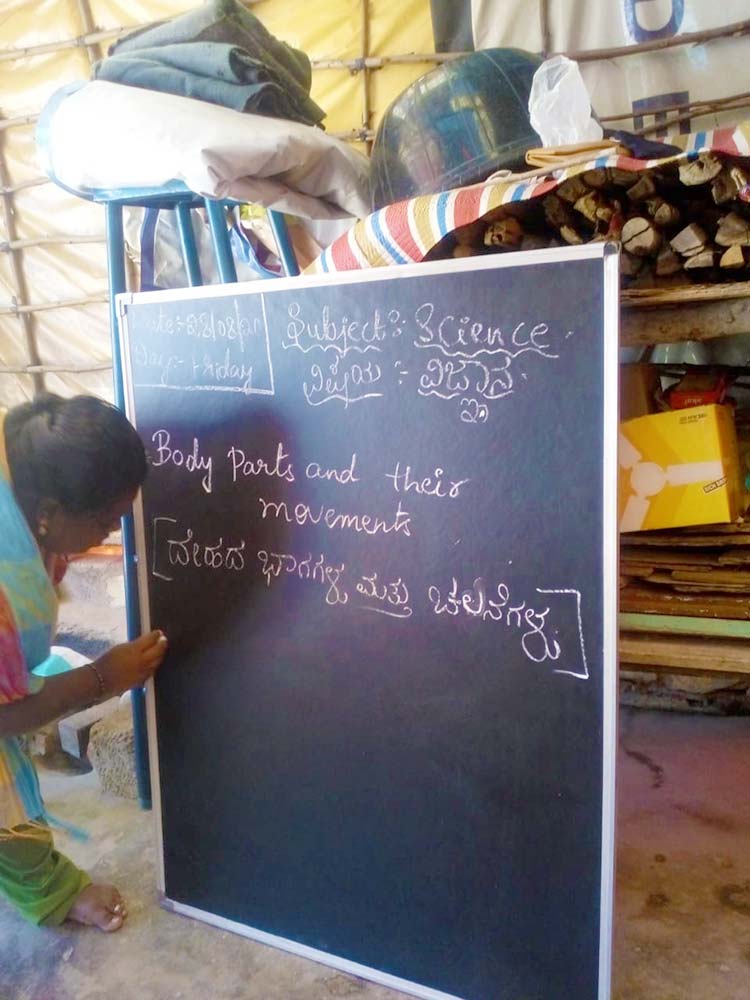 Date:- 28/08/20
Day:- Friday
Subject:- Science
ವಿಷಯ :- ವಿಜ್ಞಾನ
Body Parts and their
movements
[ದೇಹದ ಭಾಗಗಳು ಮತ್ತು ಚಲನೆಗಳು]